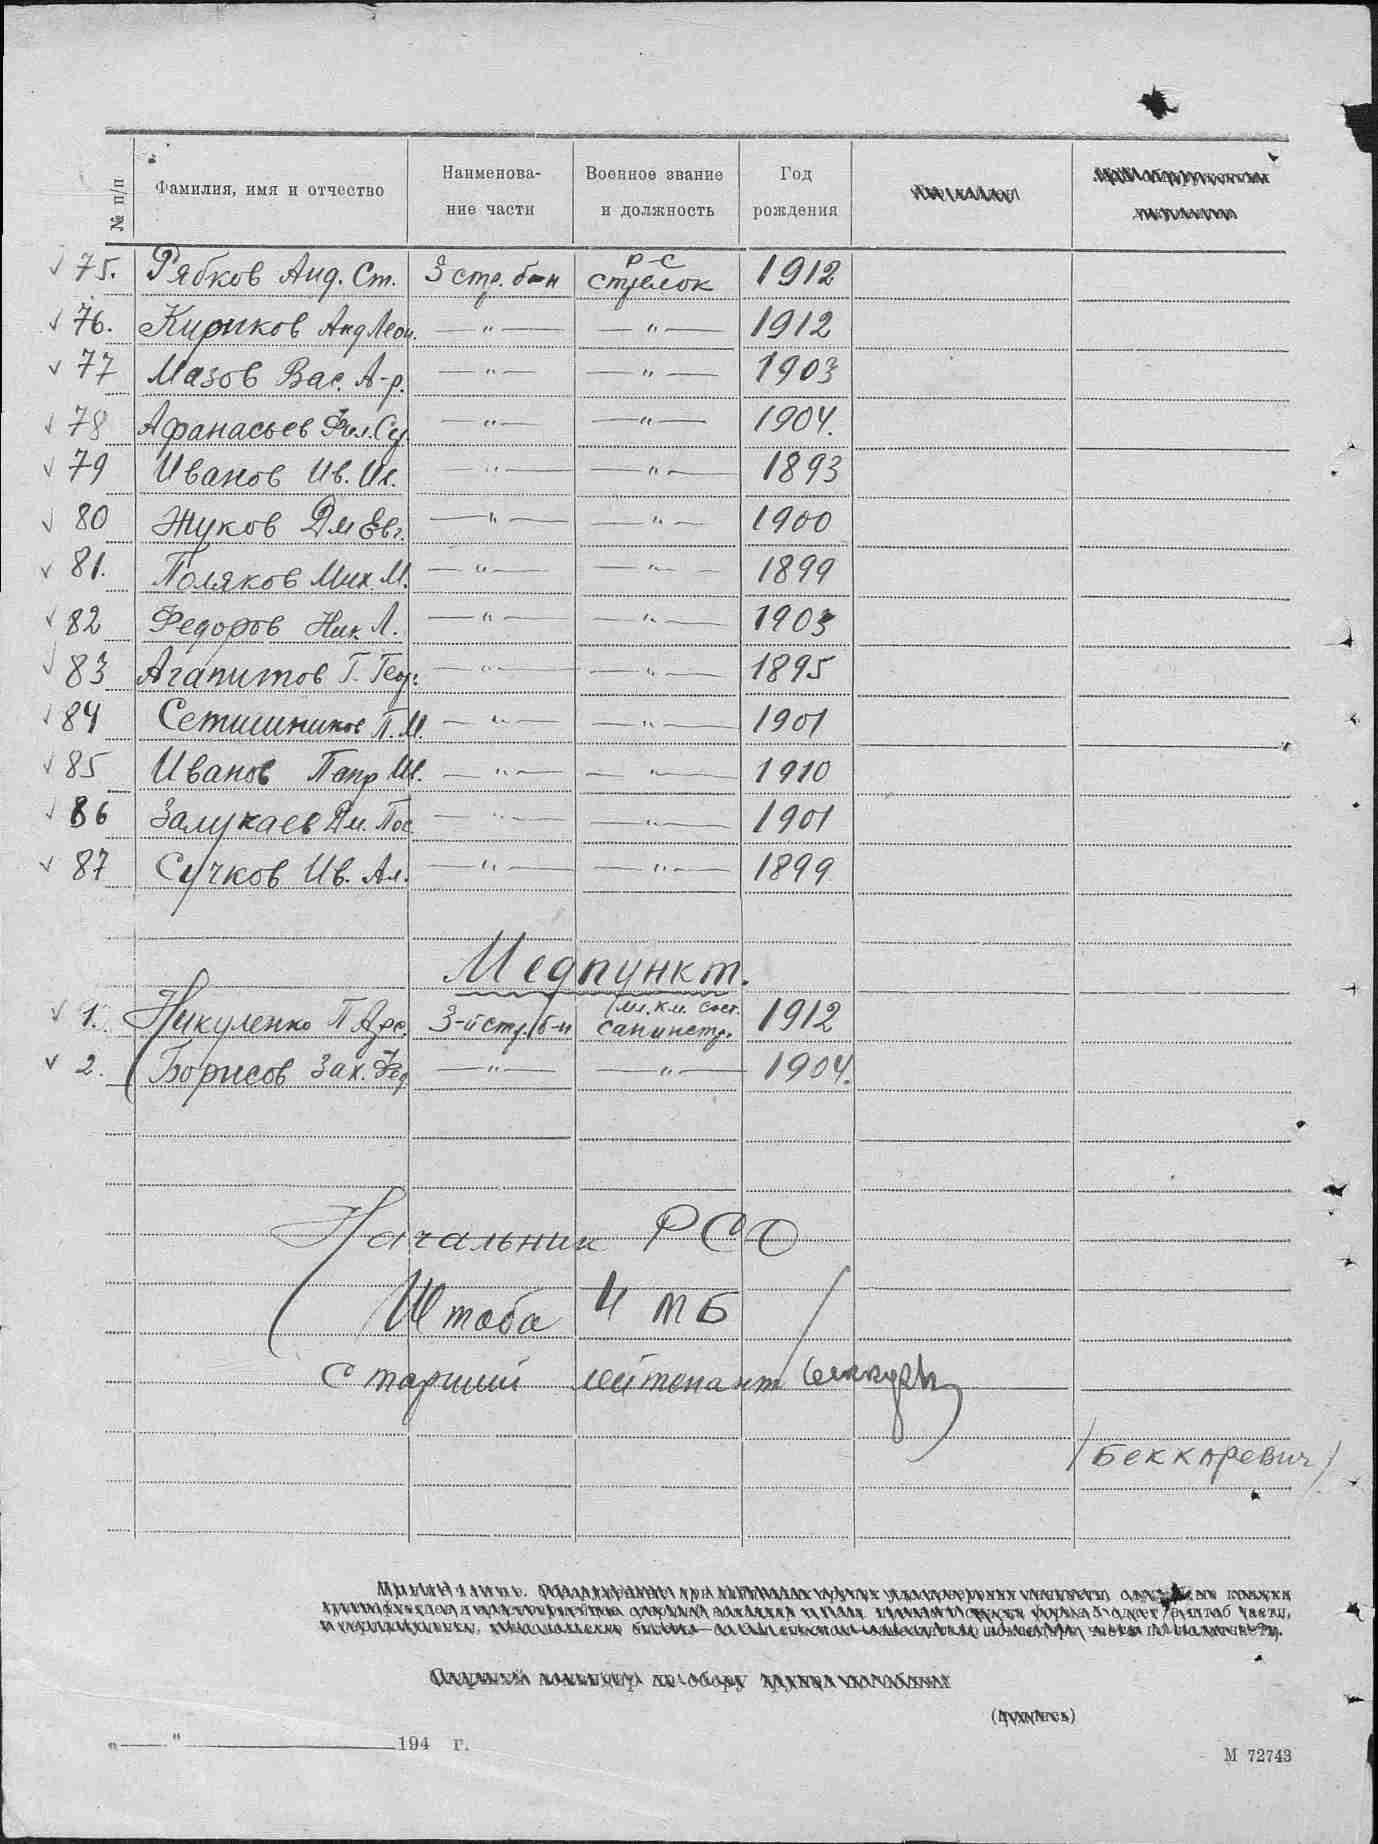 № п/п Фамилия, имя и отчество Наименова- ние части Военное звание и должность Год рождения
75. Рябков Анд. Ст. 3 стр. б-н р-с стрелок 1912
76. Кириков Анд Леон. —"— —"— 1912
77 Мазов Вас. А-р. —"— —"— 1903
78 Афанасьев Фил. —"— —"— 1904.
79 Иванов Ив. Ив. —"— —"— 1893
80 Жуков Дм Евг. —"— —"— 1900
81. Поляков Мих. М. —"— —"— 1899
82 Федоров Ник Л. —"— —"— 1903
83 Агапитов Г. Геор. —"— —"— 1895
84 П. М. —"— —"— 1901
85 Иванов Петр —"— —"— 1910
86 Залукаев Дм. —"— —"— 1901
87 Сучков Ив. Ал. —"— —"— 1899
Медпункт.
1. Никуленко П Арс. 3-й стр. б-н Мл. к.м. сост. санинстр. 1912
2. Борисов Зах. Фед —"— —"— 1904.
Начальник РСО
Штаба 4 МБ
Старший лейтенант
/Беккаревич/
194 г.
М 72743